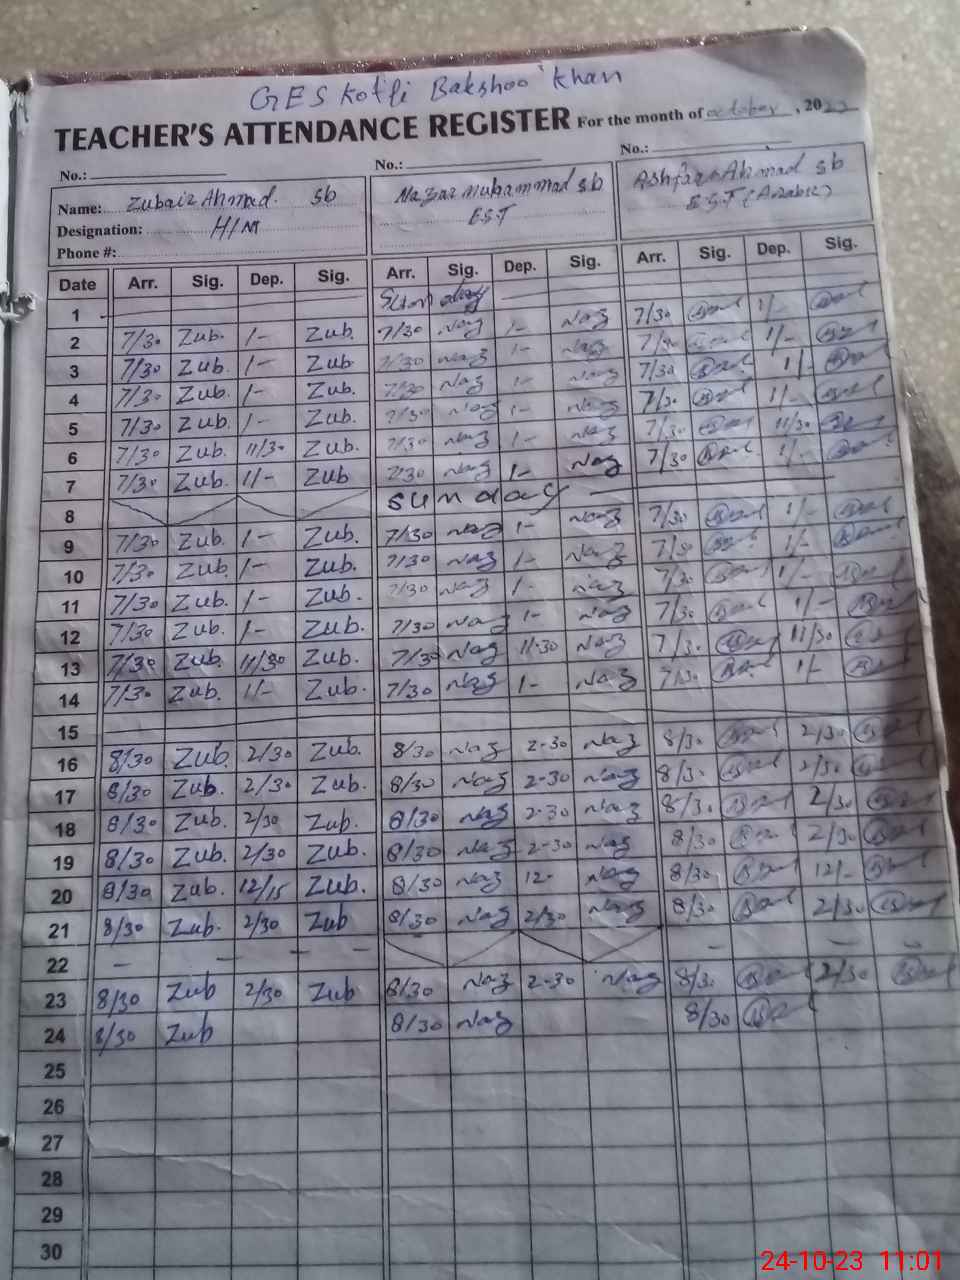 GES Kotli Bakshoo Khan
TEACHER'S ATTENDANCE REGISTER For the month of October, 2023
No.: No.: No.:
Name: Zubair Ahmad. Sb Nazar Muhammad Sb Ashfaq Ahmad Sb
Designation: H/M E.S.T E.S.T (Arabic)
Phone #:
Date Arr. Sig. Dep. Sig. Arr. Sig. Dep. Sig. Arr. Sig. Dep. Sig.
1 Sunday
2 7/30 Zub. 1/- Zub. 7/30 Naz 1- Naz 7/30 1/-
3 7/30 Zub. 1/- Zub. 7/30 Naz 1- Naz 7/30 1/-
4 7/30 Zub. 1/- Zub. 7/30 Naz 1- Naz 7/30 1/-
5 7/30 Zub. 1/- Zub. 7/30 Naz 1- Naz 7/30 1/-
6 7/30 Zub. 11/30 Zub. 7/30 Naz 1- Naz 7/30 11/30
7 7/30 Zub. 1/- Zub 7/30 Naz 1- Naz 7/30 1/-
8 Sunday
9 7/30 Zub. 1/- Zub. 7/30 Naz 1- Naz 7/30 1/-
10 7/30 Zub. 1/- Zub. 7/30 Naz 1- Naz 7/30 1/-
11 7/30 Zub. 1/- Zub. 7/30 Naz 1- Naz 7/30 1/-
12 7/30 Zub. 1/- Zub. 7/30 Naz 1- Naz 7/30 1/-
13 7/30 Zub. 11/30 Zub. 7/30 Naz 11-30 Naz 7/30 11/30
14 7/30 Zub. 1/- Zub. 7/30 Naz 1- Naz 7/30 1/-
15
16 8/30 Zub. 2/30 Zub. 8/30 Naz 2-30 Naz 8/30 2/30
17 8/30 Zub. 2/30 Zub. 8/30 Naz 2-30 Naz 8/30 2/30
18 8/30 Zub. 2/30 Zub. 8/30 Naz 2-30 Naz 8/30 2/30
19 8/30 Zub. 2/30 Zub. 8/30 Naz 2-30 Naz 8/30 2/30
20 8/30 Zub. 12/15 Zub. 8/30 Naz 12- Naz 8/30 12/-
21 8/30 Zub. 2/30 Zub 8/30 Naz 2/30 Naz 8/30 2/30
22 — — — — — — —
23 8/30 Zub 2/30 Zub 8/30 Naz 2-30 Naz 8/30 2/30
24 8/30 Zub 8/30 Naz 8/30
25
26
27
28
29
30
24-10-23 11:01